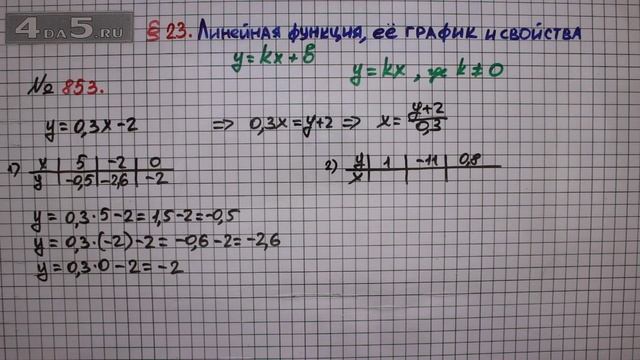 4DA5.RU
§ 23. Линейная функция, её график и свойства
y = kx + b
y = kx, где k ≠ 0
№ 853.
y = 0,3x - 2 ⇒ 0,3x = y + 2 ⇒ x = \frac{y+2}{0,3}
1) x | 5 | -2 | 0
y | -0,5 | -2,6 | -2
2) y | 1 | -11 | 0,8
x
y = 0,3 · 5 - 2 = 1,5 - 2 = -0,5
y = 0,3 · (-2) - 2 = -0,6 - 2 = -2,6
y = 0,3 · 0 - 2 = -2